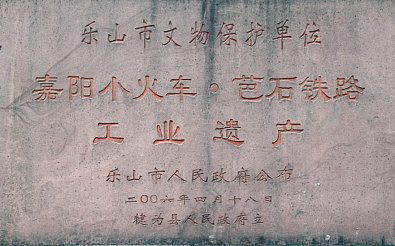 乐山市文物保护单位
嘉阳小火车·芭石铁路
工业遗产
乐山市人民政府公布
二〇〇六年四月十八日
犍为县人民政府立